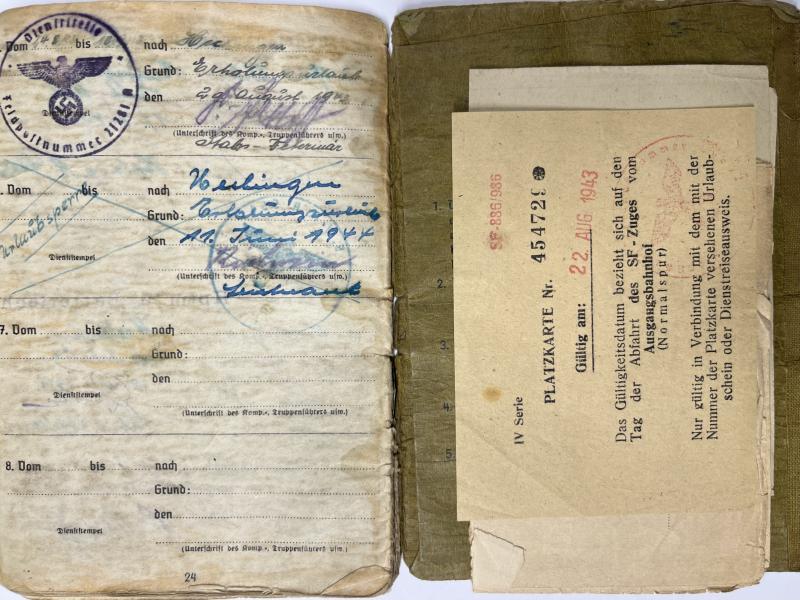 Dienststelle
Feldpostnummer 21281 A
. Vom bis nach
Grund: Erholungsurlaub
den 29. August 1942
Dienststempel
(Unterschrift des Komp.-, Truppenführers usw.)
Stabs-Veterinär
. Vom bis nach
Grund: Erholungsurlaub
den 11. Juni 1944
Dienststempel
(Unterschrift des Komp.-, Truppenführers usw.)
Leutnant
Urlaubssperre
7. Vom bis nach
Grund:
den
Dienststempel
(Unterschrift des Komp.-, Truppenführers usw.)
8. Vom bis nach
Grund:
den
Dienststempel
(Unterschrift des Komp.-, Truppenführers usw.)
24
1.
2.
3.
4.
5.
SF-886/986
IV Serie
PLATZKARTE Nr. 454729
Gültig am: 22. AUG 1943
Das Gültigkeitsdatum bezieht sich auf den
Tag der Abfahrt des SF-Zuges vom
Ausgangsbahnhof
(Normalspur)
Nur gültig in Verbindung mit dem mit der
Nummer der Platzkarte versehenen Urlaub-
schein oder Dienstreiseausweis.